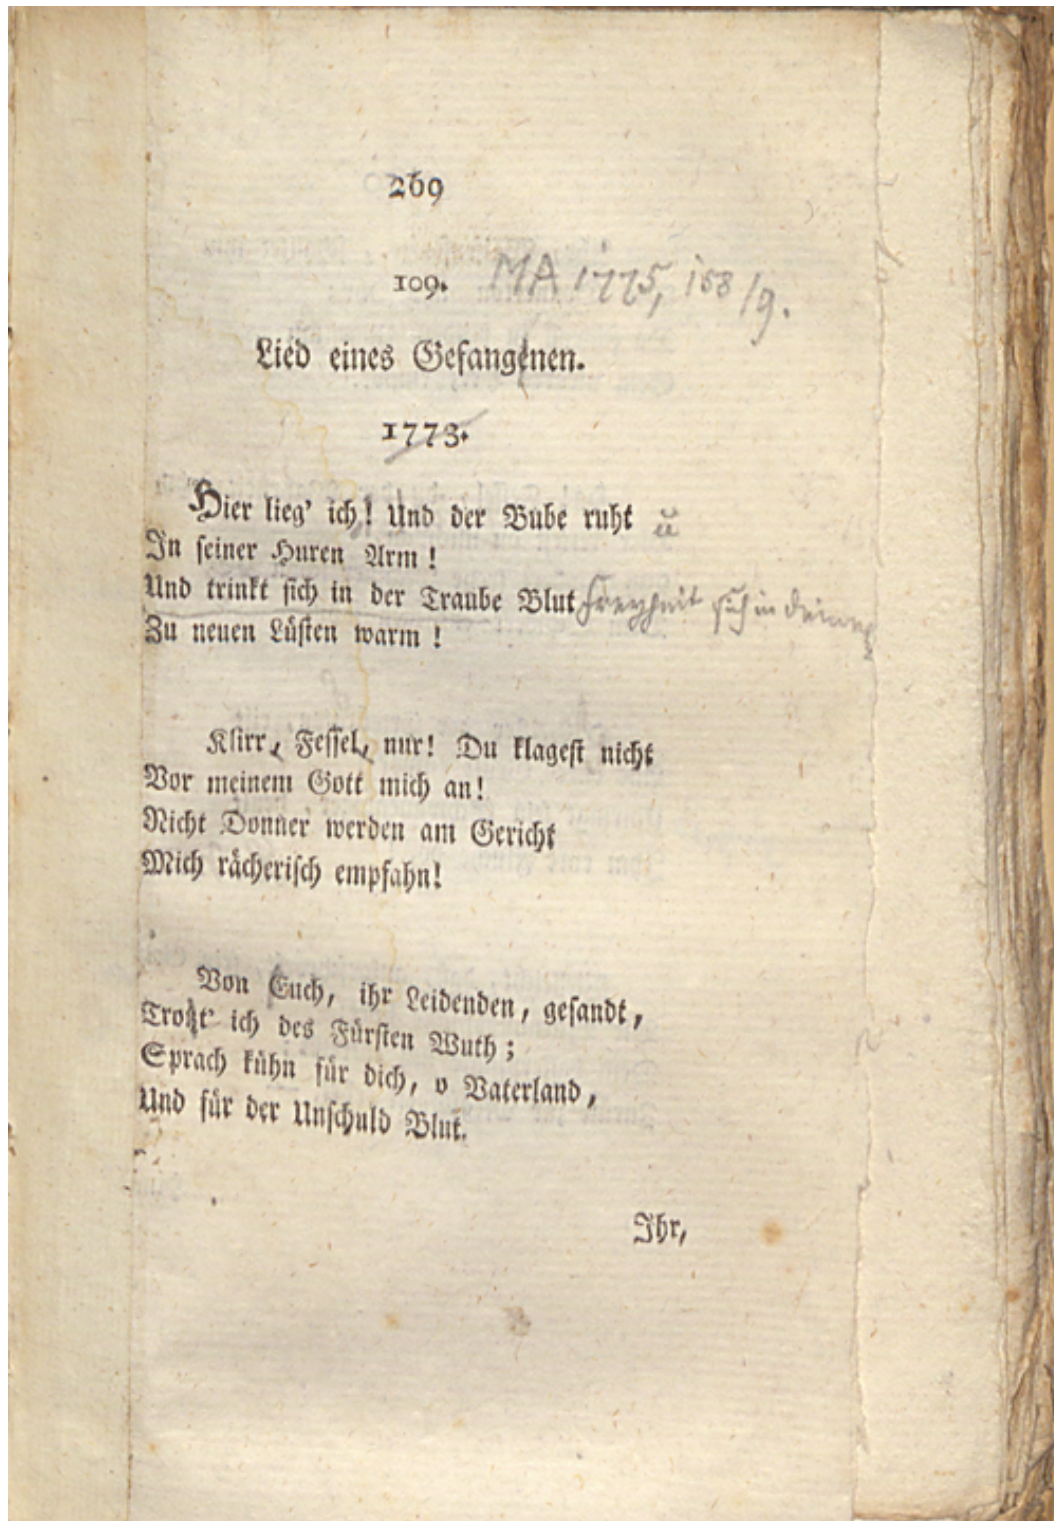 269
109. MA 1775, 158/9.
Lied eines Gefangenen.
1773.
Hier lieg' ich! Und der Bube ruht ü
In seiner Huren Arm!
Und trinkt sich in der Traube Blut Freyheit sich in deinem
Zu neuen Lüsten warm!
Klirr, Fessel, nur! Du klagest nicht
Vor meinem Gott mich an!
Nicht Donner werden am Gericht
Mich rächerisch empfahn!
Von Euch, ihr Leidenden, gesandt,
Trotzt' ich des Fürsten Wuth;
Sprach kühn für dich, o Vaterland,
Und für der Unschuld Blut.
Ihr,